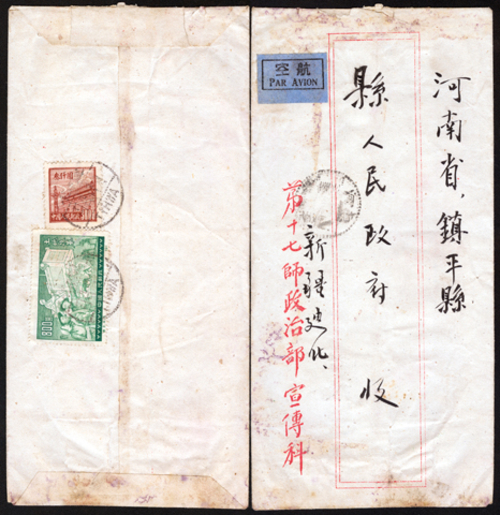 河南省，鎮平縣
縣人民政府 收
航空
PAR AVION
新疆迪化、
第十七師政治部宣傳科
800